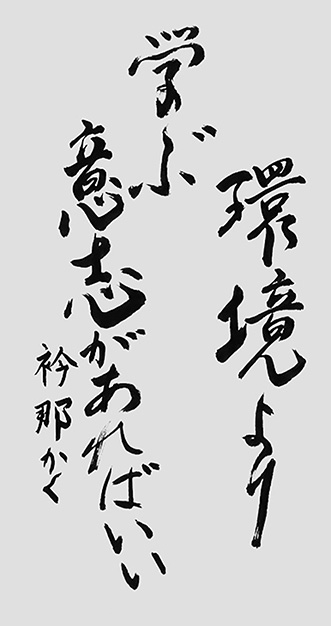 環境より
学ぶ
意志があればいい
衿那かく